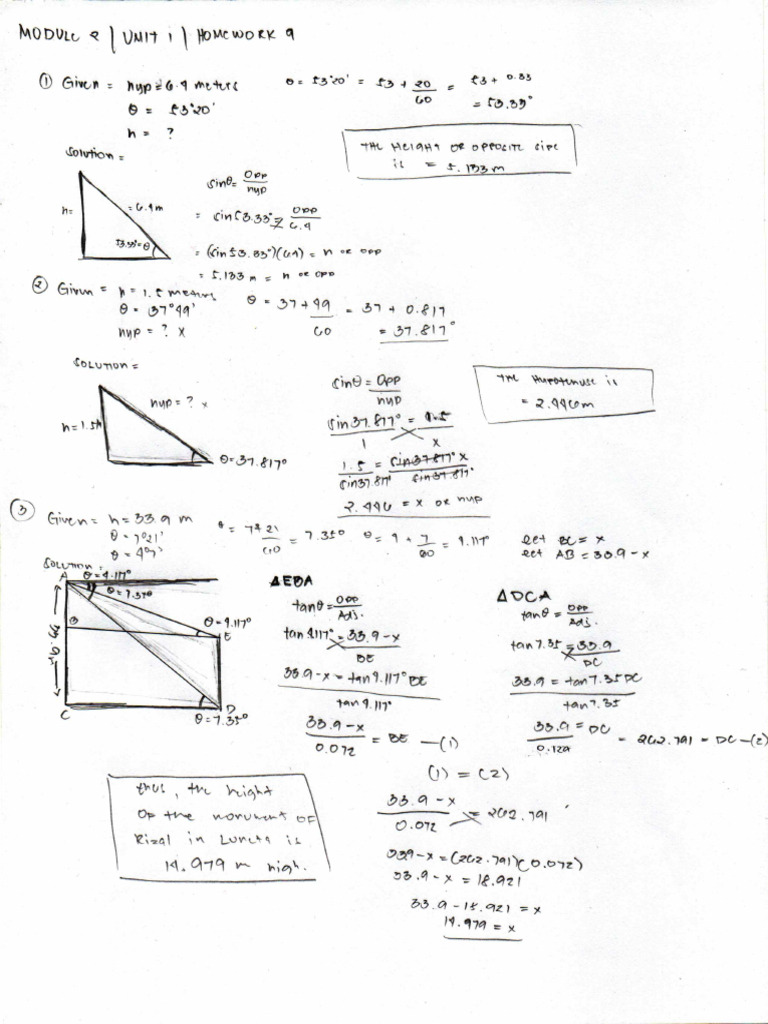 MODULE 2 | UNIT 1 | HOMEWORK 9
① Given = hyp = 6.4 meters
θ = 53°20'
h = ?
θ = 53°20' = 53 + 20/60 = 53 + 0.33
= 53.33°
THE HEIGHT OR OPPOSITE SIDE
IS = 5.133 m
Solution =
h=
= 6.4m
53.33°=θ
sinθ = OPP/hyp
= sin53.33° = OPP/6.4
= (sin53.33°)(6.4) = h OR OPP
= 5.133 m = h OR OPP
② Given = h = 1.5 meters
θ = 37°49'
hyp = ? x
θ = 37 + 49/60 = 37 + 0.817
= 37.817°
SOLUTION =
h=1.5m
hyp = ? x
θ=37.817°
sinθ = OPP/hyp
sin37.817°/1 = 1.5/x
1.5/sin37.817 = sin37.817° x/sin37.817°
2.446 = x OR hyp
THE HYPOTENUSE IS
= 2.446m
③ Given = h = 33.9 m
θ = 7°21'
θ = 4°7'
θ = 7+21/60 = 7.35° θ = 4 + 7/60 = 4.117°
Let BC = x
Let AB = 33.9 - x
SOLUTION =
A
θ = 4.117°
θ = 7.35°
B
θ = 4.117°
E
33.9
C
D
θ = 7.35°
ΔEBA
tanθ = OPP/Adj.
tan 4.117° = 33.9 - x/BE
33.9 - x = tan 4.117° BE
tan 4.117°
33.9 - x/0.072 = BE — (1)
ΔDCA
tanθ = OPP/Adj.
tan 7.35 = 33.9/DC
33.9 = tan 7.35 DC
tan 7.35
33.9/0.129 = DC = 262.791 = DC — (2)
(1) = (2)
33.9 - x/0.072 = 262.791
33.9 - x = (262.791)(0.072)
33.9 - x = 18.921
33.9 - 18.921 = x
14.979 = x
Thus, the height
OF the monument OF
Rizal in Luneta is
14.979 m high.